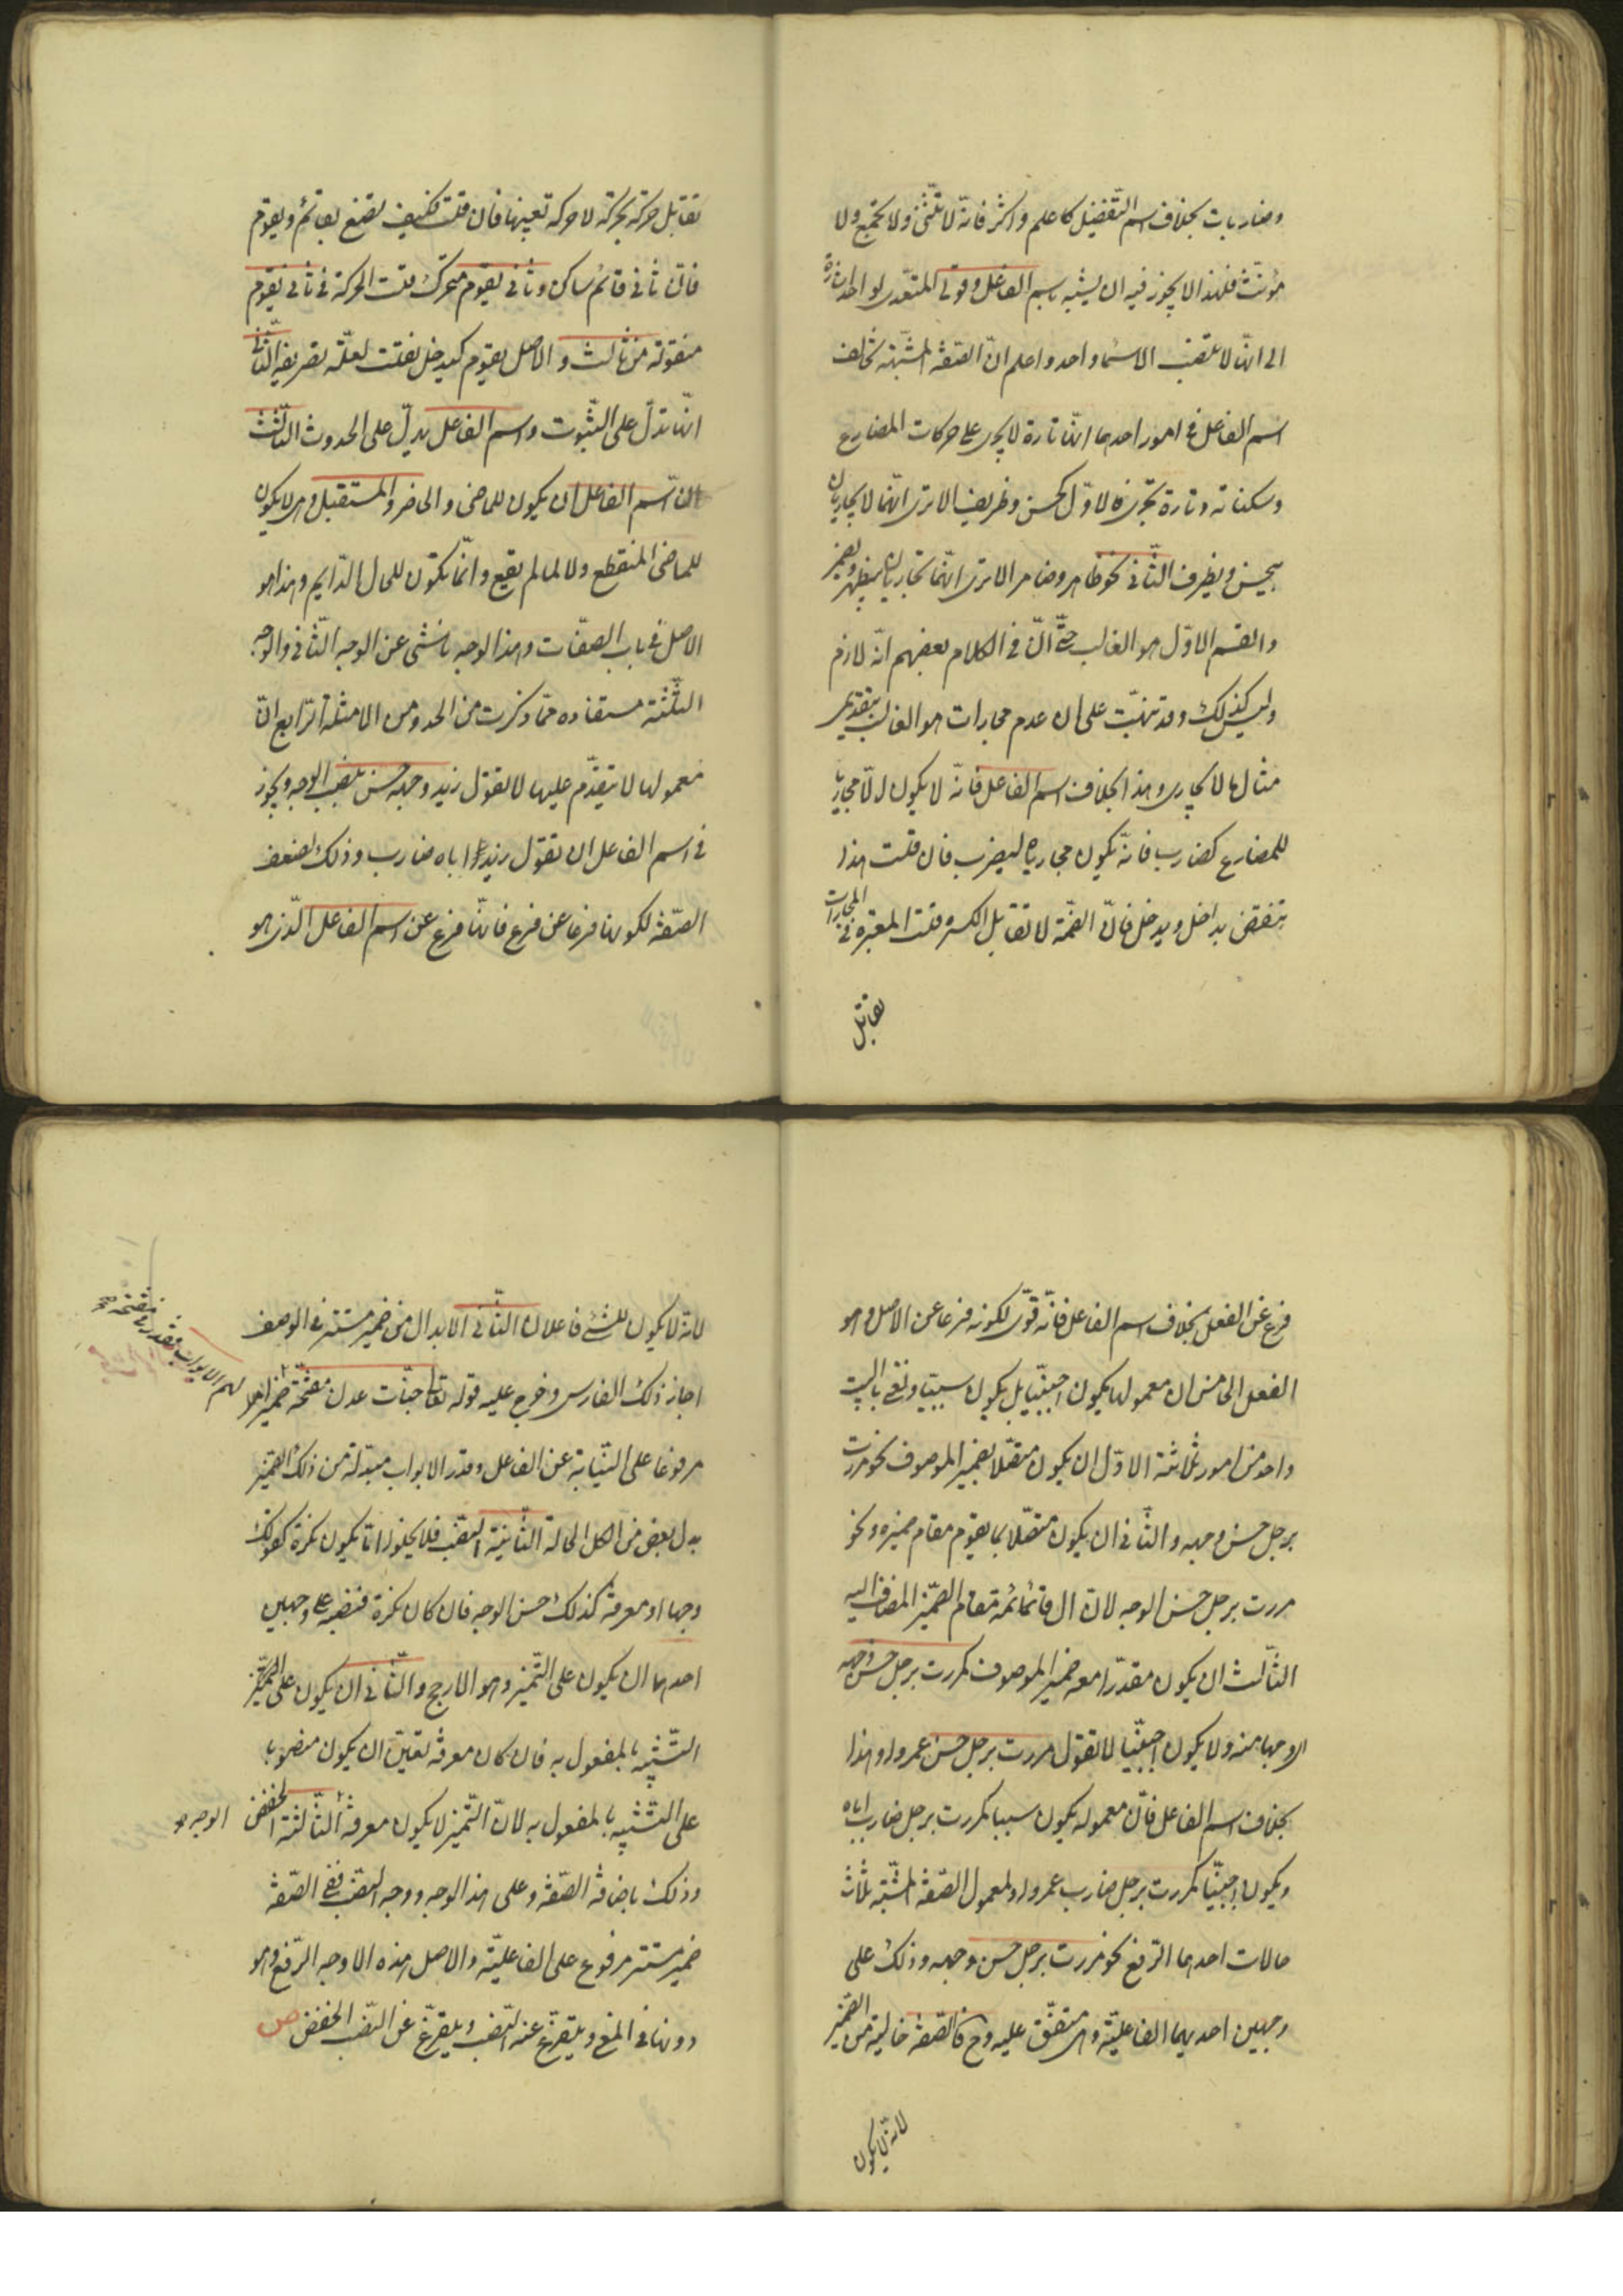 وضاربات بخلاف اسم التّفضيل كاعلم واكثر فانّه لا يثنّى ولا يجمع ولا
مؤنّث فلهذا لا يجوز فيه ان يشبه باسم الفاعل وقولى المتعّدى لواحد اشارة
الى انّها لا تنصب الا اسما واحد واعلم انّ الصّفة المشبّهة تخالف
اسم الفاعل فى امور احدها انّها تارة لا يجرى على حركات المضارع
وسكناته وتارة تجرى فالاوّل كحسن وظريف الا ترى انّهما لا يجاريان
يحسن ويظرف الثّانى نحو طاهر وضامر الا ترى انّهما تجاريان يطهر ويضمر
والقسم الاوّل هو الغالب حتّى انّ فى الكلام بعضهم انّه لازم
وليس كذلك وقد نبّهت على ان عدم مجارات هو الغالب بتقديم
مثال ما لا يجارى وهذا بخلاف اسم الفاعل فانّه لا يكون الّا مجاريا
للمضارع كضارب فانّه يكون مجاريا ليضرب فان قلت هذا
ينتقض بداخل ويدخل فانّ الضّمة لا تقابل الكسرة قلت المعتبر فى المجارات
تقابل
تقابل حركة بحركة لا حركة تعينها فان قلت فكيف تصنع بقائم ويقوم
فانّ ثانى قائم ساكن وثانى يقوم متحرّك قلت الحركة فى ثانى يقوم
منقولة من ثالث والاصل يقوم كيدخل نقلت لعلّة تصريفه الثّانى
انّها تدلّ على الثّبوت واسم الفاعل يدلّ على الحدوث الثّالث
انّ اسم الفاعل ان يكون للماضى والحاضر والمستقبل وهى لا يكون
للماضى المنقطع ولا لما لم يقع وانّما تكون للحال الدّايم وهذا هو
الاصل فى باب الصفّات وهذا الوجه ناشئى عن الوجه الثّانى والوجه
الثّلثة مستفاده ممّا ذكرت من الحد ومن الامثلة الرّابع انّ
معمولها لا يتقدّم عليها لا تقول زيد وجهه حسن بنصب الوجه ويجوز
فى اسم الفاعل ان تقول زيدا اباه ضارب وذلك لضعف
الصّفة لكونها فرعا عن فرع فانّها فرع عن اسم الفاعل الّذى هو
فرع عن الفعل بخلاف اسم الفاعل فانّه قوّى لكونه فرعا عن الاصل وهو
الفعل الخامس ان معمولها يكون اجنبّيا بل يكون سببيّا ونعنى بالسببى
واحد من امور ثلاثة الاوّل ان يكون متصّلا بضمير الموصوف نحو مررت
برجل حسن وجهه والثّانى ان يكون متصّلا بما يقوم مقام ضميره ونحو
مررت برجل حسن الوجه لانّ ال قائمة مقام الضّمير المضاف اليه
الثّالث ان يكون مقدّرا معه ضمير الموصوف كمررت برجل حسن وجها
اى وجها منه ولا يكون اجنبّيا لا تقول مررت برجل حسن عمروا وهذا
بخلاف اسم الفاعل فانّ معموله يكون سببيا كمررت برجل ضارب اباه
ويكون اجنبيّا كمررت برجل ضارب عمروا ولمعمول الصّفة المشبّهة ثلاث
حالات احدها الرّفع نحو مررت برجل حسن وجهه وذلك على
وجهين احدهما الفاعليّة وهى متفّق عليه وح فالصّفة خالية من الضّمير
لانّه لا يكون
لانّه لا يكون للشئ فاعلان الثّانى الابدال من ضمير مستتر فى الوصف
اجاز ذلك الفارس وخرج عليه قوله تعالى جنّات عدن مفتّحة
مرفوعا على النّيابة عن الفاعل وقدّر الابواب مبدلة من ذلك الضّمير
بدل بعض من الكل الحالة الثّانية النّصب فلا يخلوا امّا يكون نكرة كقولك
وجها او معرفة كذلك حسن الوجه فان كان نكرة فنصبه على وجهين
احدهما ان يكون على التّميز وهو الارجح والثّانى ان يكون على
التّشبيه بالمفعول به فان كان معرفة تعيّن ان يكون منصوبا
على التّشبيه بالمفعول به لانّ التّميز لا يكون معرفة الثّالثة الخفض
وذلك باضافة الصّفة وعلى هذا الوجه ووجه النّصب ففى الصّفة
ضمير مستتر مرفوع على الفاعليّة والاصل هذه الاوجه الرّفع وهو
دونها فى المعنى ويتفرّع عنه النّصب ويتفرّع عن النّصب الخفض ص
لهم الابواب فقدر فى مفتحة
الوجه